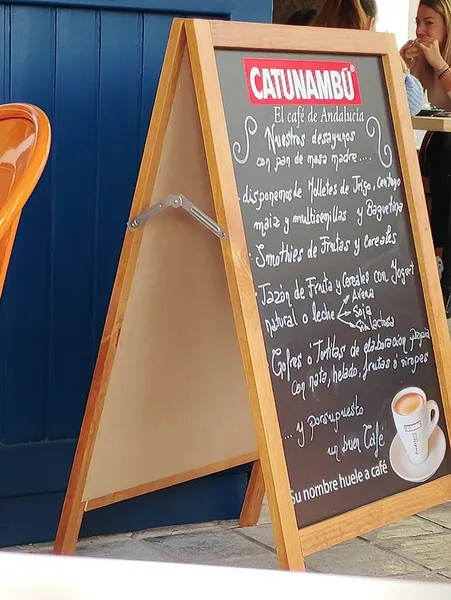 CATUNAMBÚ®
El café de Andalucía
Nuestros desayunos
con pan de masa madre...
disponemos de Molletes de Trigo, centeno
maiz y multisemillas y Baguetina
. Smothies de Frutas y cereales
.Tazón de Fruta y Cereales con Yogurt
natural o leche Avena
Soja
Sin lactosa
Gofres ó Tortitas de elaboración propia
con nata, helado, frutas ó siropes
... y porsupuesto
un buen Café
Su nombre huele a café